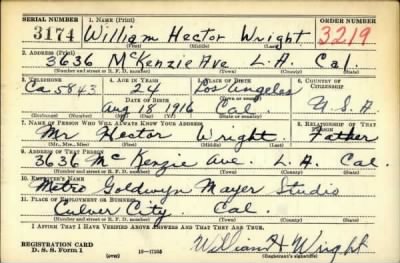 SERIAL NUMBER 1. NAME (Print) ORDER NUMBER
3174 William Hector Wright 3219
(First) (Middle) (Last)
2. ADDRESS (Print)
3636 McKenzie Ave L.A. Cal.
(Number and street or R. F. D. number) (Town) (County) (State)
3. TELEPHONE 4. AGE IN YEARS 5. PLACE OF BIRTH 6. COUNTRY OF CITIZENSHIP
Ca 5843 24 Los Angeles
DATE OF BIRTH
Aug 18 1916 Cal. U.S.A
(Exchange) (Number) (Mo.) (Day) (Yr.) (State or country)
7. NAME OF PERSON WHO WILL ALWAYS KNOW YOUR ADDRESS 8. RELATIONSHIP OF THAT PERSON
Mr Hector Wright Father
(Mr., Mrs., Miss) (First) (Middle) (Last)
9. ADDRESS OF THAT PERSON
3636 Mc Kenzie Ave. L. A. Cal.
(Number and street or R. F. D. number) (Town) (County) (State)
10. EMPLOYER'S NAME
Metro Goldwyn Mayer Studio
11. PLACE OF EMPLOYMENT OR BUSINESS
Culver City. Cal.
(Number and street or R. F. D. number) (Town) (County) (State)
I AFFIRM THAT I HAVE VERIFIED ABOVE ANSWERS AND THAT THEY ARE TRUE.
REGISTRATION CARD
D. S. S. Form 1 (over) William H Wright
(Registrant's signature)